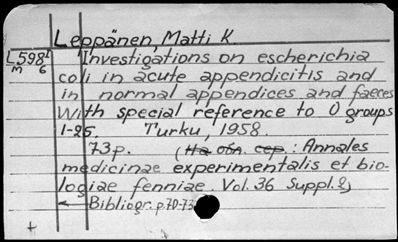 Leppänen, Matti K.
L598¹ Investigations on escherichia
M 6 coli in acute appendicitis and
in normal appendices and faeces
With special reference to O groups
1-25. Turku, 1958.
73p. (На обл. сер.: Annales
medicinae experimentalis et bio-
logiae fenniae. Vol. 36 Suppl. 2)
Bibliogr. p. 70-73